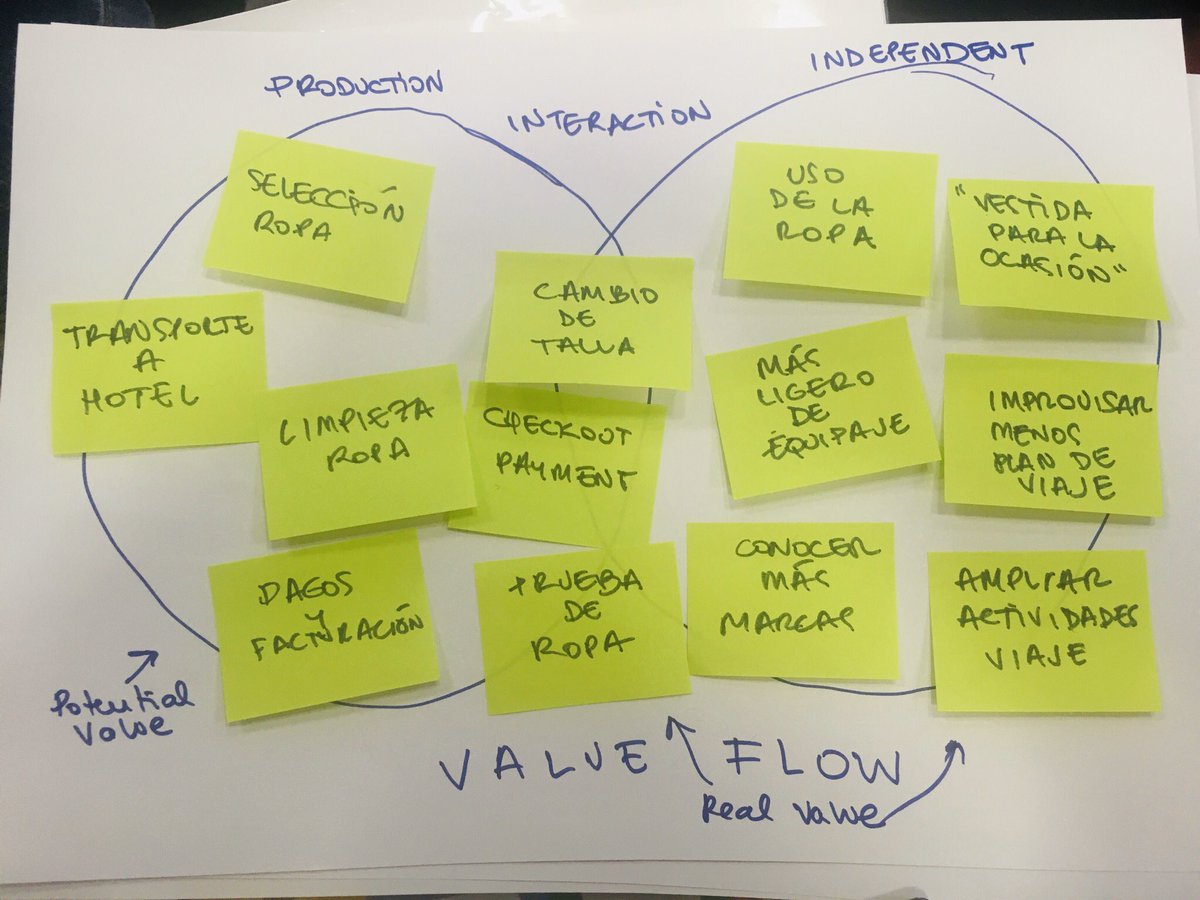 PRODUCTION
INTERACTION
INDEPENDENT
SELECCIÓN
ROPA
TRANSPORTE
A
HOTEL
LIMPIEZA
ROPA
DAGOS
Y
FACTURACIÓN
CAMBIO
DE
TALLA
CHECKOUT
PAYMENT
PRUEBA
DE
ROPA
USO
DE LA
ROPA
"VESTIDA
PARA LA
OCASIÓN"
MÁS
LIGERO
DE
EQUIPAJE
IMPROVISAR
MENOS
PLAN DE
VIAJE
CONOCER
MÁS
MARCAS
AMPLIAR
ACTIVIDADES
VIAJE
Potential
Value
VALUE FLOW
Real Value